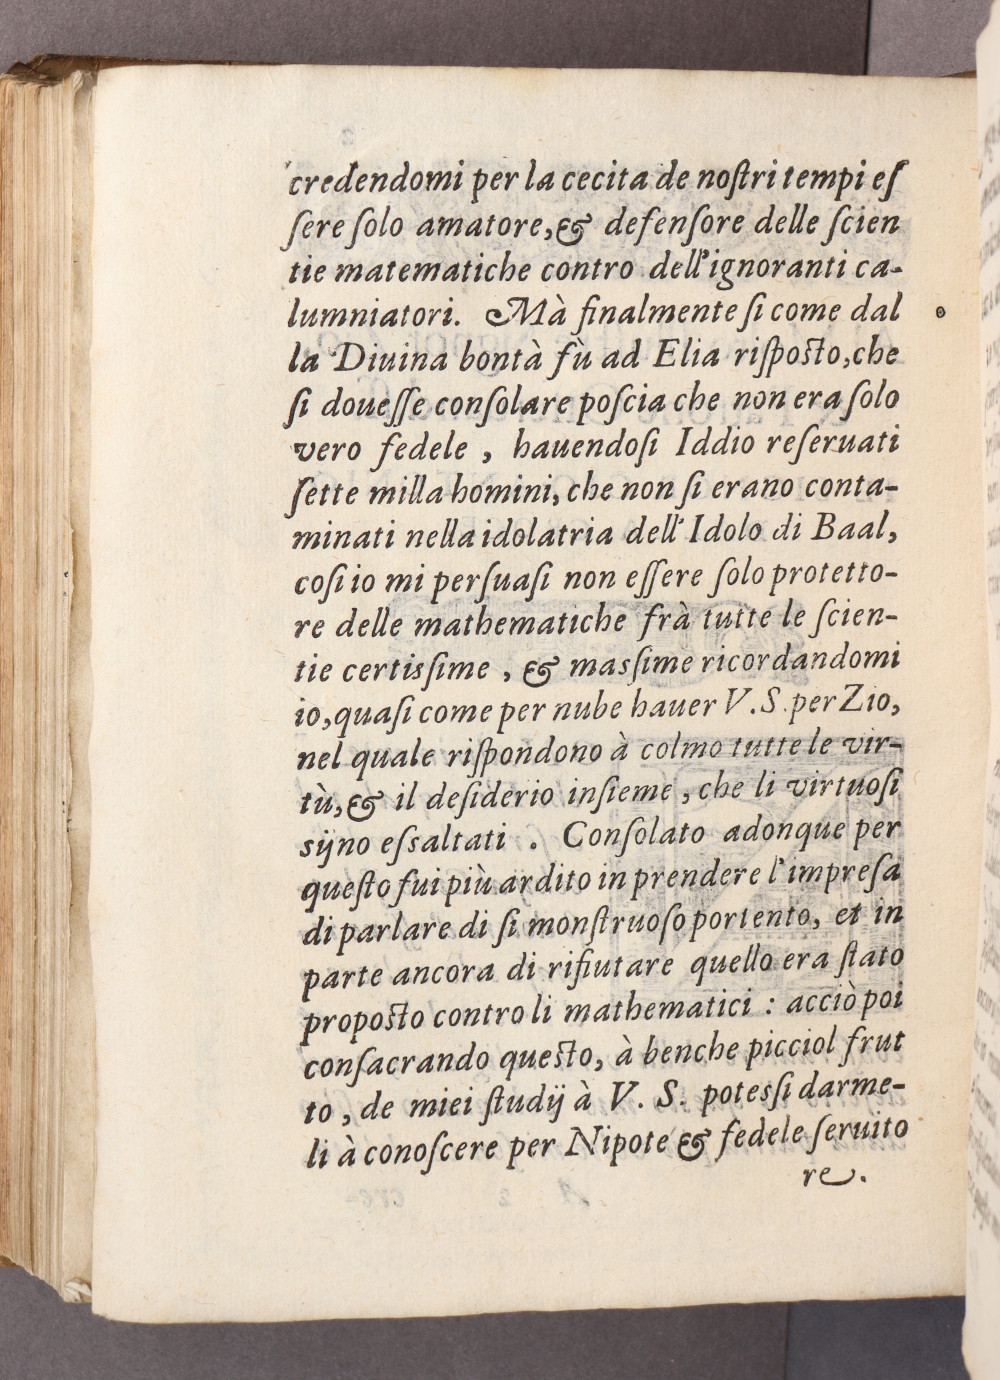 credendomi per la cecita de noſtri tempi eſ
ſere ſolo amatore, & defenſore delle ſcien
tie matematiche contro dell'ignoranti ca-
lumniatori. Mà finalmente ſi come dal
la Diuina bontà fù ad Elia riſpoſto, che
ſi doueſſe conſolare poſcia che non era ſolo
vero fedele , hauendoſi Iddio reſeruati
ſette milla homini, che non ſi erano conta-
minati nella idolatria dell'Idolo di Baal,
coſi io mi perſuaſi non eſſere ſolo protetto-
re delle mathematiche frà tutte le ſcien-
tie certisſime , & masſime ricordandomi
io, quaſi come per nube hauer V. S. per Zio,
nel quale riſpondono à colmo tutte le vir-
tù, & il deſiderio inſieme , che li virtuoſi
sijno eſsaltati . Conſolato adonque per
queſto fui più ardito in prendere l'impreſa
di parlare di ſi monſtruoſo portento, et in
parte ancora di rifiutare quello era ſtato
propoſto contro li mathematici : acciò poi
conſacrando queſto, à benche picciol frut
to , de miei ſtudij à V. S. potesſi darme-
li à conoſcere per Nipote & fedele ſeruito
re.